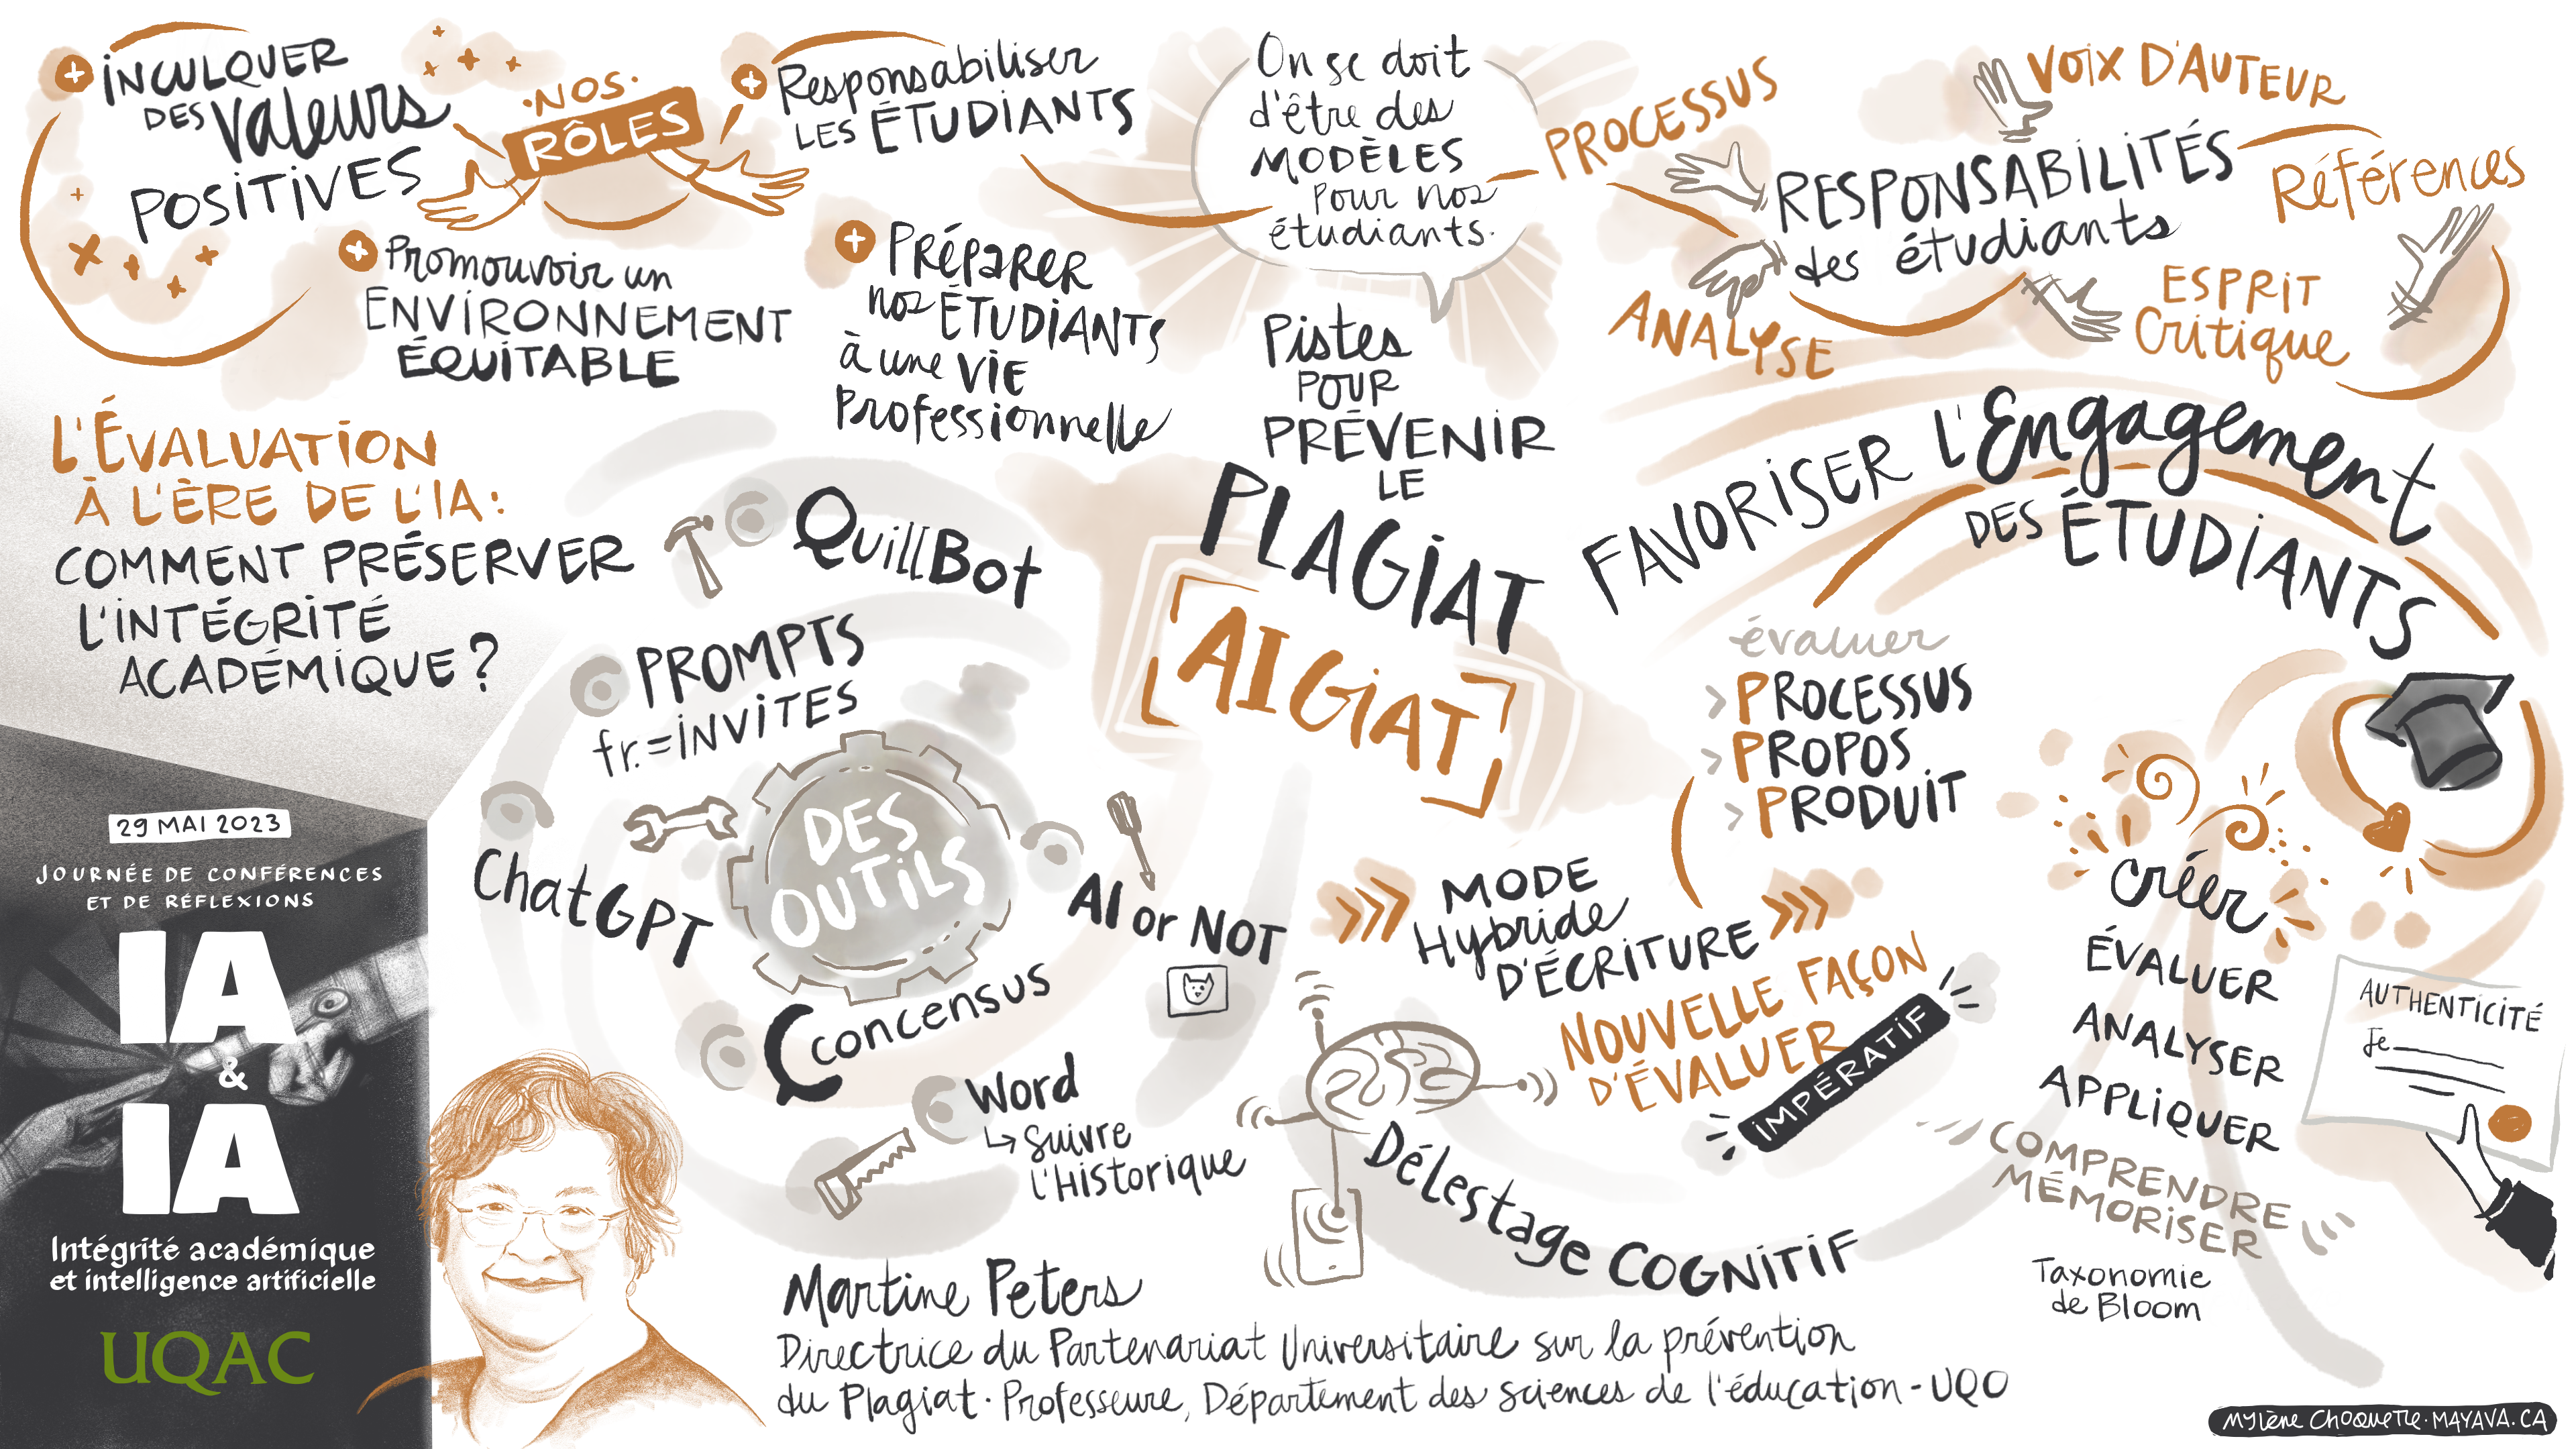 INCULQUER
DES valeurs
POSITIVES
• NOS •
RÔLES
Responsabiliser
LES ÉTUDIANTS
Promouvoir un
ENVIRONNEMENT
ÉQUITABLE
PRÉPARER
nos ÉTUDIANTS
à une VIE
Professionnelle
On se doit
d'être des
MODÈLES
Pour nos
étudiants.
PROCESSUS
VOIX D'AUTEUR
RESPONSABILITÉS
des étudiants
Références
ANALYSE
ESPRIT
Critique
L'ÉVALUATION
À L'ÈRE DE L'IA:
COMMENT PRÉSERVER
L'INTÉGRITÉ
ACADÉMIQUE?
Pistes
POUR
PRÉVENIR
LE
PLAGIAT
AIGIAT
FAVORISER L'Engagement
DES ÉTUDIANTS
évaluer
> PROCESSUS
> PROPOS
> PRODUIT
QuillBot
PROMPTS
fr. = INVITES
DES
OUTILS
ChatGPT
AI or NOT
C concensus
Word
↳ Suivre
L'Historique
MODE
Hybride
D'ÉCRITURE
NOUVELLE FAÇON
D'ÉVALUER
IMPÉRATIF
DÉLestage COGNITIF
créer
ÉVALUER
ANALYSER
APPLIQUER
COMPRENDRE
MÉMORISER
Taxonomie
de Bloom
AUTHENTICITÉ
Je
29 MAI 2023
JOURNÉE DE CONFÉRENCES
ET DE RÉFLEXIONS
IA
&
IA
Intégrité académique
et intelligence artificielle
UQAC
Martine Peters
Directrice du Partenariat Universitaire sur la prévention
du Plagiat • Professeure, Département des sciences de l'éducation - UQO
MYLÈNE CHOQUETTE • MAYAVA.CA